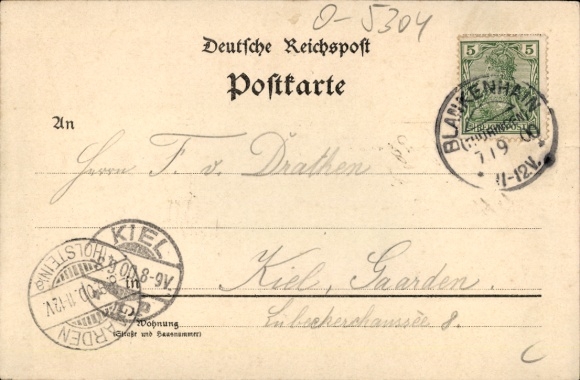 O-5304
Deutsche Reichspost
Postkarte
5 5
REICHSPOST
BLANKENHAIN
(THÜRINGEN)
7/9 00
* 11-12V. *
An
Herrn F. v. Drathen
Kiel, Gaarden.
Lübeckerchaussée 8.
KIEL
00 8-9V.
(HOLSTEIN)
00. 11-12V.
in
Wohnung
(Straße und Hausnummer)